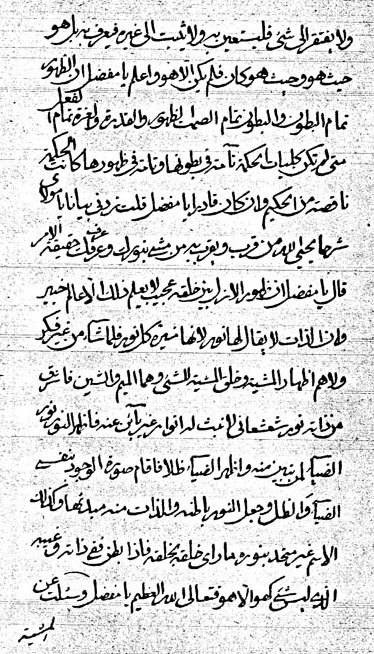 ولا يفتقر الى شئ فليستعين به ولا يثبت الى غيره فيعرف به بل هو
حيث هو وحيث هو كان فلم يكن الا هو واعلم يا مفضل ان الظهور
تمام البطون والبطون تمام الصمت الظهور والقدرة والعزة تمام الفعل
متى لم تكن كليات الحكمة تامة في بطونها وتامة في ظهورها كانت الحكمة
ناقصة من الحكيم وان كان قادرا يا مفضل قلت زدني بيانا يا مولاي
شرحا يحيى الله من قرب ويقرب به من مشى بنورك وعرفك حقيقة الامر
قال يا مفضل ان ظهور الازل بين خلقه عجيب لا يعلم ذلك الا عالم خبير
وان الذات لا يقال لها نور لانها منيرة كل نور فلما شاء من غير فكر
ولا هم اظهار المشية وخلق المشية للشئ وهما الميم والشين فاشرق
من ذاته نور شعشعاني لا تثبت له انوار غير بائن عنه فاظهر النور نور
الضياء لم يتبين منه واظهر الضياء ظلا فاقام صورة الوجود بنفسه
الضياء والظل وجعل النور باطنه والذات منه مبدئها وكذلك
الاسم غير متحد بنوره وما راى خلقه بخلقه فاذا بطن ففي ذاته وغيبه
الذي ليس شئ كهو الا هو فتعالى الله العظيم يا مفضل وسئلت عن
المشية